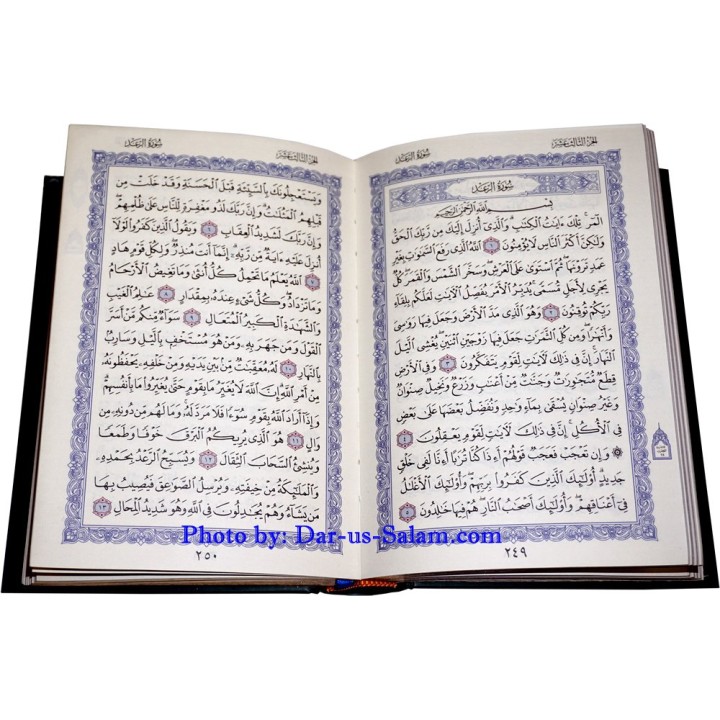 سُورَةُ الرَّعْدِ
الجُزْءُ الثَّالِثَ عَشَرَ
سُورَةُ الرَّعْدِ
بِسْمِ اللَّهِ الرَّحْمَٰنِ الرَّحِيمِ
الٓمٓرۚ تِلْكَ ءَايَٰتُ ٱلْكِتَٰبِۗ وَٱلَّذِىٓ أُنزِلَ إِلَيْكَ مِن رَّبِّكَ ٱلْحَقُّ
وَلَٰكِنَّ أَكْثَرَ ٱلنَّاسِ لَا يُؤْمِنُونَ ١ ٱللَّهُ ٱلَّذِى رَفَعَ ٱلسَّمَٰوَٰتِ بِغَيْرِ
عَمَدٍ تَرَوْنَهَاۖ ثُمَّ ٱسْتَوَىٰ عَلَى ٱلْعَرْشِۖ وَسَخَّرَ ٱلشَّمْسَ وَٱلْقَمَرَۖ كُلٌّ
يَجْرِى لِأَجَلٍ مُّسَمًّىۚ يُدَبِّرُ ٱلْأَمْرَ يُفَصِّلُ ٱلْءَايَٰتِ لَعَلَّكُم بِلِقَآءِ
رَبِّكُمْ تُوقِنُونَ ٢ وَهُوَ ٱلَّذِى مَدَّ ٱلْأَرْضَ وَجَعَلَ فِيهَا رَوَٰسِىَ
وَأَنْهَٰرًاۖ وَمِن كُلِّ ٱلثَّمَرَٰتِ جَعَلَ فِيهَا زَوْجَيْنِ ٱثْنَيْنِۖ يُغْشِى ٱلَّيْلَ
ٱلنَّهَارَۚ إِنَّ فِى ذَٰلِكَ لَءَايَٰتٍ لِّقَوْمٍ يَتَفَكَّرُونَ ٣ وَفِى ٱلْأَرْضِ
قِطَعٌ مُّتَجَٰوِرَٰتٌ وَجَنَّٰتٌ مِّنْ أَعْنَٰبٍ وَزَرْعٌ وَنَخِيلٌ صِنْوَانٌ
وَغَيْرُ صِنْوَانٍ يُسْقَىٰ بِمَآءٍ وَٰحِدٍ وَنُفَضِّلُ بَعْضَهَا عَلَىٰ بَعْضٍ
فِى ٱلْأُكُلِۚ إِنَّ فِى ذَٰلِكَ لَءَايَٰتٍ لِّقَوْمٍ يَعْقِلُونَ ٤
۞ وَإِن تَعْجَبْ فَعَجَبٌ قَوْلُهُمْ أَءِذَا كُنَّا تُرَٰبًا أَءِنَّا لَفِى خَلْقٍ
جَدِيدٍۗ أُو۟لَٰٓئِكَ ٱلَّذِينَ كَفَرُوا۟ بِرَبِّهِمْۖ وَأُو۟لَٰٓئِكَ ٱلْأَغْلَٰلُ
فِىٓ أَعْنَاقِهِمْۖ وَأُو۟لَٰٓئِكَ أَصْحَٰبُ ٱلنَّارِۖ هُمْ فِيهَا خَٰلِدُونَ ٥
٢٤٩
سُورَةُ الرَّعْدِ
الجُزْءُ الثَّالِثَ عَشَرَ
وَيَسْتَعْجِلُونَكَ بِٱلسَّيِّئَةِ قَبْلَ ٱلْحَسَنَةِ وَقَدْ خَلَتْ مِن
قَبْلِهِمُ ٱلْمَثُلَٰتُۗ وَإِنَّ رَبَّكَ لَذُو مَغْفِرَةٍ لِّلنَّاسِ عَلَىٰ ظُلْمِهِمْۖ
وَإِنَّ رَبَّكَ لَشَدِيدُ ٱلْعِقَابِ ٦ وَيَقُولُ ٱلَّذِينَ كَفَرُوا۟ لَوْلَآ
أُنزِلَ عَلَيْهِ ءَايَةٌ مِّن رَّبِّهِۦٓۗ إِنَّمَآ أَنتَ مُنذِرٌۖ وَلِكُلِّ قَوْمٍ هَادٍ
٧ ٱللَّهُ يَعْلَمُ مَا تَحْمِلُ كُلُّ أُنثَىٰ وَمَا تَغِيضُ ٱلْأَرْحَامُ
وَمَا تَزْدَادُۖ وَكُلُّ شَىْءٍ عِندَهُۥ بِمِقْدَارٍ ٨ عَٰلِمُ ٱلْغَيْبِ
وَٱلشَّهَٰدَةِ ٱلْكَبِيرُ ٱلْمُتَعَالِ ٩ سَوَآءٌ مِّنكُم مَّنْ أَسَرَّ
ٱلْقَوْلَ وَمَن جَهَرَ بِهِۦ وَمَنْ هُوَ مُسْتَخْفٍۭ بِٱلَّيْلِ وَسَارِبٌۢ
بِٱلنَّهَارِ ١٠ لَهُۥ مُعَقِّبَٰتٌ مِّنۢ بَيْنِ يَدَيْهِ وَمِنْ خَلْفِهِۦ يَحْفَظُونَهُۥ
مِنْ أَمْرِ ٱللَّهِۗ إِنَّ ٱللَّهَ لَا يُغَيِّرُ مَا بِقَوْمٍ حَتَّىٰ يُغَيِّرُوا۟ مَا بِأَنفُسِهِمْۗ
وَإِذَآ أَرَادَ ٱللَّهُ بِقَوْمٍ سُوٓءًا فَلَا مَرَدَّ لَهُۥۚ وَمَا لَهُم مِّن دُونِهِۦ مِن
وَالٍ ١١ هُوَ ٱلَّذِى يُرِيكُمُ ٱلْبَرْقَ خَوْفًا وَطَمَعًا
وَيُنشِئُ ٱلسَّحَابَ ٱلثِّقَالَ ١٢ وَيُسَبِّحُ ٱلرَّعْدُ بِحَمْدِهِۦ
وَٱلْمَلَٰٓئِكَةُ مِنْ خِيفَتِهِۦ وَيُرْسِلُ ٱلصَّوَٰعِقَ فَيُصِيبُ بِهَا
مَن يَشَآءُ وَهُمْ يُجَٰدِلُونَ فِى ٱللَّهِ وَهُوَ شَدِيدُ ٱلْمِحَالِ ١٣
٢٥٠
Photo by: Dar-us-Salam.com